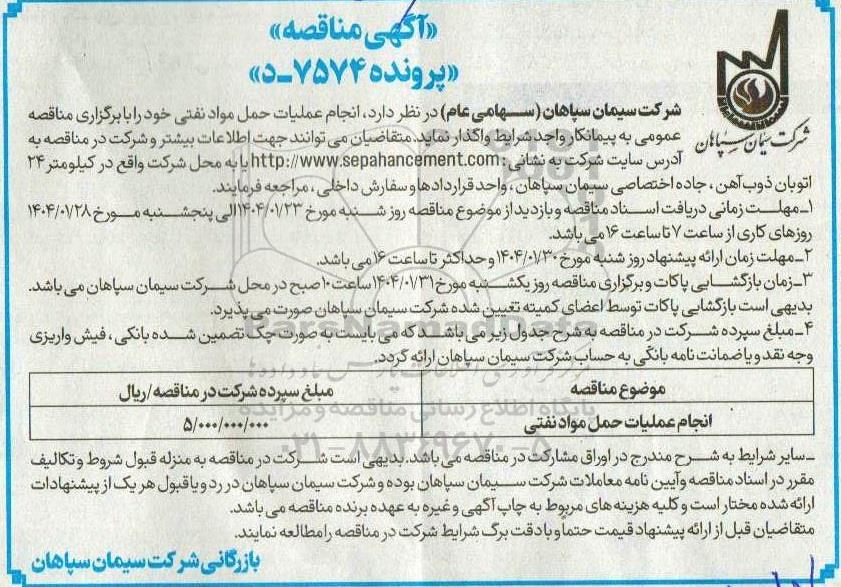 «آگهی مناقصه»
«پرونده ۷۵۷۴-د»
شرکت سیمان سپاهان
شرکت سیمان سپاهان (سهامی عام) در نظر دارد، انجام عملیات حمل مواد نفتی خود را با برگزاری مناقصه
عمومی به پیمانکار واجد شرایط واگذار نماید. متقاضیان می توانند جهت اطلاعات بیشتر و شرکت در مناقصه به
آدرس سایت شرکت به نشانی: http://www.sepahancement.com یا به محل شرکت واقع در کیلومتر ۲۴
اتوبان ذوب آهن، جاده اختصاصی سیمان سپاهان، واحد قراردادها و سفارش داخلی، مراجعه فرمایند.
۱-مهلت زمانی دریافت اسناد مناقصه و بازدید از موضوع مناقصه روز شنبه مورخ ۱۴۰۴/۰۱/۲۳ الی پنجشنبه مورخ ۱۴۰۴/۰۱/۲۸
روزهای کاری از ساعت ۷ تا ساعت ۱۶ می باشد.
۲-مهلت زمان ارائه پیشنهاد روز شنبه مورخ ۱۴۰۴/۰۱/۳۰ و حداکثر تا ساعت ۱۶ می باشد.
۳-زمان بازگشایی پاکات و برگزاری مناقصه روز یکشنبه مورخ ۱۴۰۴/۰۱/۳۱ ساعت ۱۰ صبح در محل شرکت سیمان سپاهان می باشد.
بدیهی است بازگشایی پاکات توسط اعضای کمیته تعیین شده شرکت سیمان سپاهان صورت می پذیرد.
۴-مبلغ سپرده شرکت در مناقصه به شرح جدول زیر می باشد که می بایست به صورت چک تضمین شده بانکی، فیش واریزی
وجه نقد و یا ضمانت نامه بانکی به حساب شرکت سیمان سپاهان ارائه گردد.
موضوع مناقصه مبلغ سپرده شرکت در مناقصه/ریال
انجام عملیات حمل مواد نفتی ۵/۰۰۰/۰۰۰/۰۰۰
پایگاه اطلاع رسانی مناقصه و مزایده
۰۲۱-۸۸۳۴۹۶۷۰-۵
ParsNamadData
-سایر شرایط به شرح مندرج در اوراق مشارکت در مناقصه می باشد. بدیهی است شرکت در مناقصه به منزله قبول شروط و تکالیف
مقرر در اسناد مناقصه و آیین نامه معاملات شرکت سیمان سپاهان بوده و شرکت سیمان سپاهان در رد و یا قبول هر یک از پیشنهادات
ارائه شده مختار است و کلیه هزینه های مربوط به چاپ آگهی و غیره به عهده برنده مناقصه می باشد.
متقاضیان قبل از ارائه پیشنهاد قیمت حتماً و با دقت برگ شرایط شرکت در مناقصه را مطالعه نمایند.
بازرگانی شرکت سیمان سپاهان